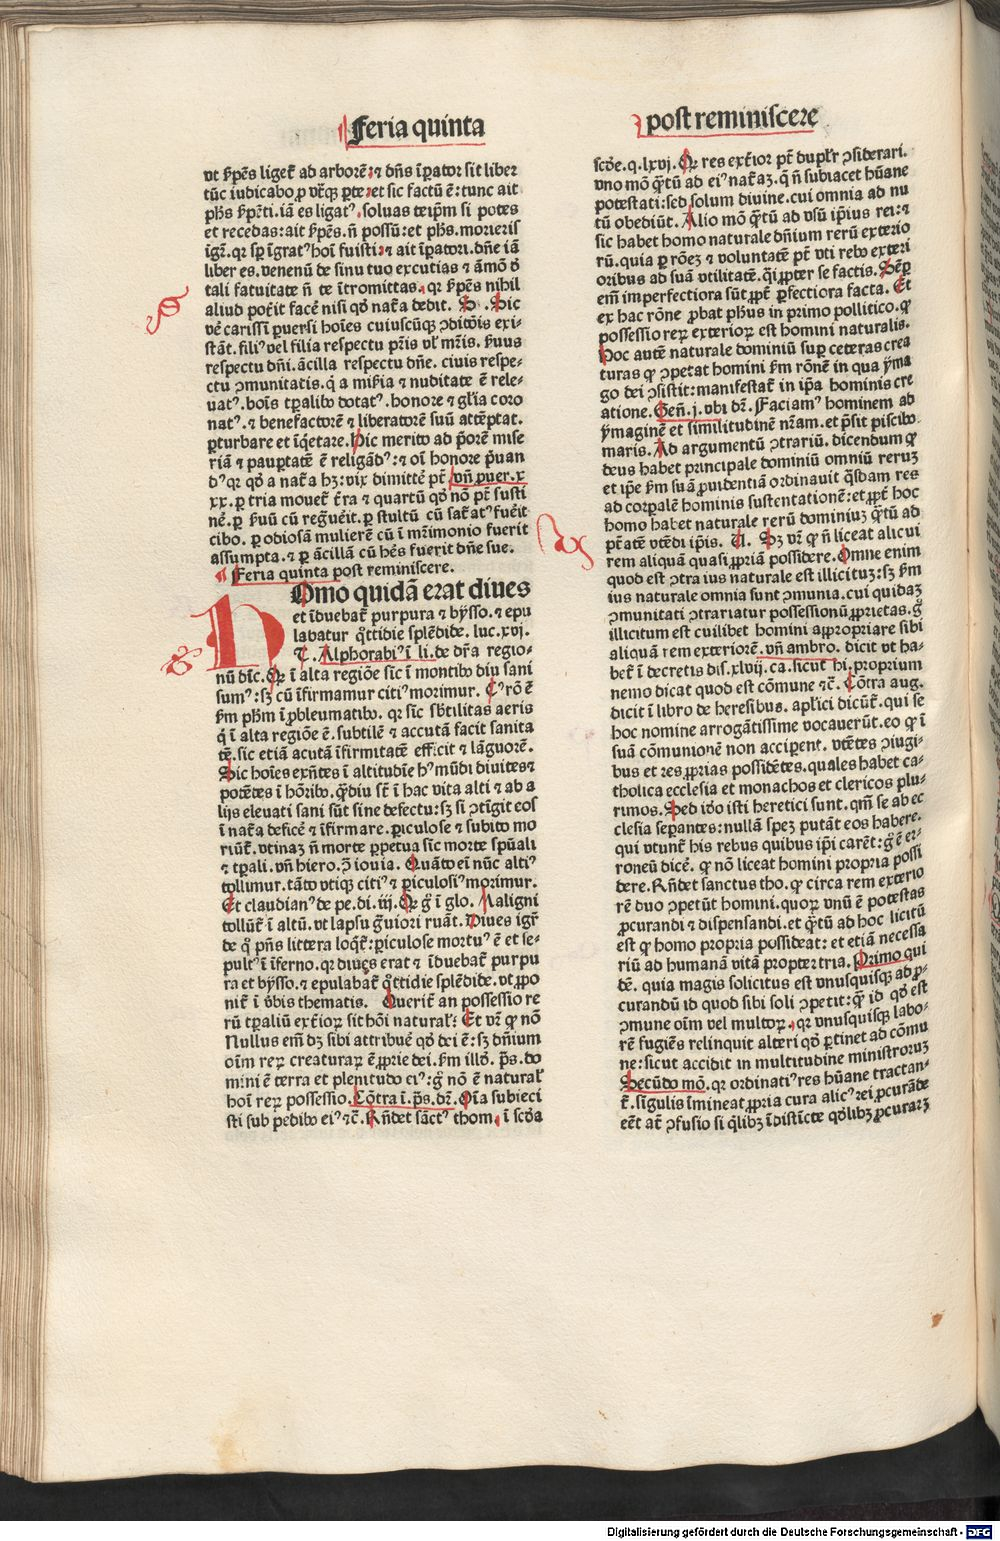 Feria quinta
post reminiscere
vt ẜpẽs liget᷑ ad arborẽ: ⁊ dñs ĩpator sit liber
tũc iudicabo ꝓ vt͛qꝫ ꝑte: et sic factũ ẽ: tunc ait
pħs ẜpẽti. iã es ligatꝰ. soluas teip̃m si potes
et recedas: ait ẜpẽs. ñ possũ: et pħs. morieris
igr̃. qꝛ sꝑ ĩgratꝰ hoĩ fuisti: ⁊ ait ĩpatori. dñe iã
liber es. venenũ de sinu tuo excutias ⁊ ãmõ ð
tali fatuitate ñ te ĩtromittas. qꝛ ẜpẽs nihil
aliud pot̃it facẽ nisi qð nat̃a dedit. S. Sic
vẽ carissĩ ꝑuersi hoĩes cuiuscũqꝫ ↄditõis exi-
stãt. filiꝰ vel filia respectu pr̃is vl̓ mr̃is. ẜuus
respectu dñi. ãcilla respectu dñe. ciuis respe-
ctu ↄmunitatis. q̃ a miẜia ⁊ nuditate ẽ rele-
uatꝰ. boĩs tꝑalibꝰ dotatꝰ. honore ⁊ gl̃ia coro
natꝰ. ⁊ benefactorẽ ⁊ liberatorẽ suũ attẽptat.
ꝑturbare et ĩq̃etare. Hic merito ad p̃orẽ mise
riã ⁊ pauꝑtatẽ ẽ religãdꝰ: ⁊ oĩ honore p̃uan
dꝰ qꝛ qð a nat̃a hꝫ: vix dimittẽ pt̃. vñ ꝓuer. x
xx. ꝑ tria mouet᷑ t̃ra ⁊ quartũ qð nõ pt̃ susti
nẽ. ꝑ ẜuũ cũ regñuẽit. ꝑ stultũ cũ sat̃atꝰ fuẽit
cibo. ꝑ odiosã mulierẽ cũ ĩ mr̃imonio fuerit
assumpta. ⁊ ꝑ ãcillã cũ hẽs fuerit dñe sue.
¶ Feria quinta post reminiscere.
HOmo quidã erat diues
et ĩduebat᷑ purpura ⁊ bysso. ⁊ epu
labatur q̊ttidie splẽdide. luc. xvj.
T. Alphorabiꝰ ĩ li. de dr̃a regio-
nũ dic̃. Qꝛ ĩ alta regiõe sic ĩ montibꝰ diu sani
sumꝰ: sꝫ cũ ĩfirmamur citiꝰ morimur. Cꝰ rõ ẽ
ẜm pħm ĩ ꝓbleumatibꝰ. qꝛ sic sb̓tilitas aeris
q̃ ĩ alta regiõe ẽ. subtilẽ ⁊ accutã facit sanita
tẽ. sic etiã acutã ĩfirmitatẽ efficit ⁊ lãguorẽ.
Sic hoĩes exñtes ĩ altitudĩe hꝰ mũdi diuites ⁊
potẽtes ĩ hõribꝰ. q̃diu st̃ ĩ hac vita alti ⁊ ab a
lijs eleuati sani sũt sine defectu: sꝫ si ↄtĩgit eos
ĩ nat̃a deficẽ ⁊ ĩfirmare. ꝑiculose ⁊ subito mo
riũt᷑. vtinaꝫ ñ morte ꝑpetua sic morte spũali
⁊ tꝑali. vñ hiero. ↄ̃ iouia. Quãto eĩ nũc altiꝰ
tollimur. tãto vtiqꝫ citiꝰ ⁊ ꝑiculosiꝰ morimur.
Et claudianꝰ de pe. di. iij. Qꝛ g̊ ĩ glo. Maligni
tollũt᷑ ĩ altũ. vt lapsu g̃uiori ruãt. Diues igr̃
de qͦ pñs littera loqt᷑: ꝑiculose mortuꝰ ẽ et se-
pultꝰ ĩ ĩferno. qꝛ diues erat ⁊ ĩduebat᷑ purpu
ra et bysso. ⁊ epulabat᷑ q̊ttidie splẽdide. vt ꝓpo
nit᷑ ĩ ṽbis thematis. Querit᷑ an possessio re
rũ tꝑaliũ ext̃ioꝝ sit hõi natural̓: Et vr̃ ꝙ nõ
Nullus em̃ dꝫ sibi attribuẽ qð dei ẽ: sꝫ dñium
oĩm reꝝ creaturaꝝ ẽ ꝓprie dei. ẜm illð. ps̃. do
mini ẽ terra et plenitudo eiꝰ: g̊ nõ ẽ natural̓
hoĩ reꝝ possessio. Cõtra ĩ. ps̃. dr̃. Oĩa subieci
sti sub pedibꝰ eiꝰ ⁊c̃. Rñdet sãctꝰ thom. ĩ scða
scðe. q. lxvj. Qꝛ res ext̃ior pt̃ dupl̓r ↄsiderari.
vno mõ q̃tũ ad eiꝰ nat̃aꝫ. q̃ ñ subiacet hũane
potestati: sed solum diuine. cui omnia ad nu
tũ obediũt. Alio mõ q̃tũ ad vsũ ip̃ius rei: ⁊
sic habet homo naturale dñium rerũ exterio
rũ. quia ꝑ rõeꝫ ⁊ voluntatẽ pt̃ vti rebꝰ exteri
oribus ad suã vtilitatẽ. q̃i ꝓpter se factis. Sẽꝑ
em̃ imperfectiora sũt ꝓpt̃ ꝑfectiora facta. Et
ex hac rõne ꝓbat pħus in primo pollitico. ꝙ
possessio reꝝ exterioꝝ est homini naturalis.
Hoc autẽ naturale dominiũ suꝑ ceteras crea
turas ꝙ ↄpetat homini ẜm rõnẽ in qua ymã
go dei ↄsistit: manifestat᷑ in ip̃a hominis cre
atione. Geñ. j. vbi dr̃. Faciamꝰ hominem ad
ymaginẽ et similitudinẽ nr̃am. et p̃sit piscibꝰ
maris. Ad argumentũ ↄtrariũ. dicendum ꝙ
deus habet principale dominiũ omniũ reruꝫ
et ip̃e ẜm suã ꝓuidentiã ordinauit q̃sdam res
ad corꝑalẽ hominis sustentationẽ: et ꝓpt̃ hoc
homo habet naturale rerũ dominiuꝫ q̃tũ ad
pt̃atẽ vtẽdi ip̃is. V. Sꝫ vr̃ ꝙ ñ liceat alicui
rem aliquã quasi ꝓpriã possidere. Omne enim
quod est ↄtra ius naturale est illicituꝫ: sꝫ ẜm
ius naturale omnia sunt ↄmunia. cui quidaꝫ
ↄmunitati ↄtrariatur possessionũ ꝓprietas. g̊
illicitum est cuilibet homini apꝓpriare sibi
aliquã rem exteriorẽ. vñ ambro. dicit vt ha-
bet᷑ ĩ decretis dis. xlvij. ca. sicut hi. proprium
nemo dicat quod est cõmune ⁊c̃. Cõtra aug.
dicit ĩ libro de heresibus. apl̓ici dicũt᷑. qui se
hoc nomine arrogãtissime vocauerũt. eo ꝙ ĩ
suã cõmunionẽ non acciꝑent. vtẽtes ↄiugi-
bus et res ꝓprias possidẽtes. quales habet ca-
tholica ecclesia et monachos et clericos plu-
rimos. Sed iðo isti heretici sunt. qm̃ se ab ec
clesia seꝑantes: nullã speꝫ putãt eos habere.
qui vtunt᷑ his rebus quibus ip̃i carẽt: g̊ ẽ er-
roneũ dicẽ. ꝙ nõ liceat homini propria possi
dere. Rñdet sanctus tho. ꝙ circa rem exterio
rẽ duo ↄpetũt homini. quoꝝ vnũ ẽ potestas
ꝓcurandi ⁊ dispensandi. et q̃tũ ad hoc licitũ
est ꝙ homo propria possideat: et etiã necessa
riũ ad humanã vitã propter tria. Primo qui
dẽ. quia magis solicitus est vnusquisqꝫ ad ꝓ-
curandũ id quod sibi soli ↄpetit: qꝫ̃ id qð est
ↄmune oĩm vel multoꝝ. qꝛ vnusquisqꝫ labo-
rẽ fugiẽs relinquit alteri qð ꝑtinet ad cõmu
ne: sicut accidit in multitudine ministroruꝫ
Secũdo mõ. qꝛ ordinatiꝰ res hũane tractan-
t᷑. sĩgulis ĩmineat ꝓpria cura alicꝰ rei ꝓcurãde
eẽt at̃ ↄfusio si q̃libꝫ ĩdistĩcte qðlibꝫ ꝓcuraꝫ
Digitalisierung gefördert durch die Deutsche Forschungsgemeinschaft - DFG